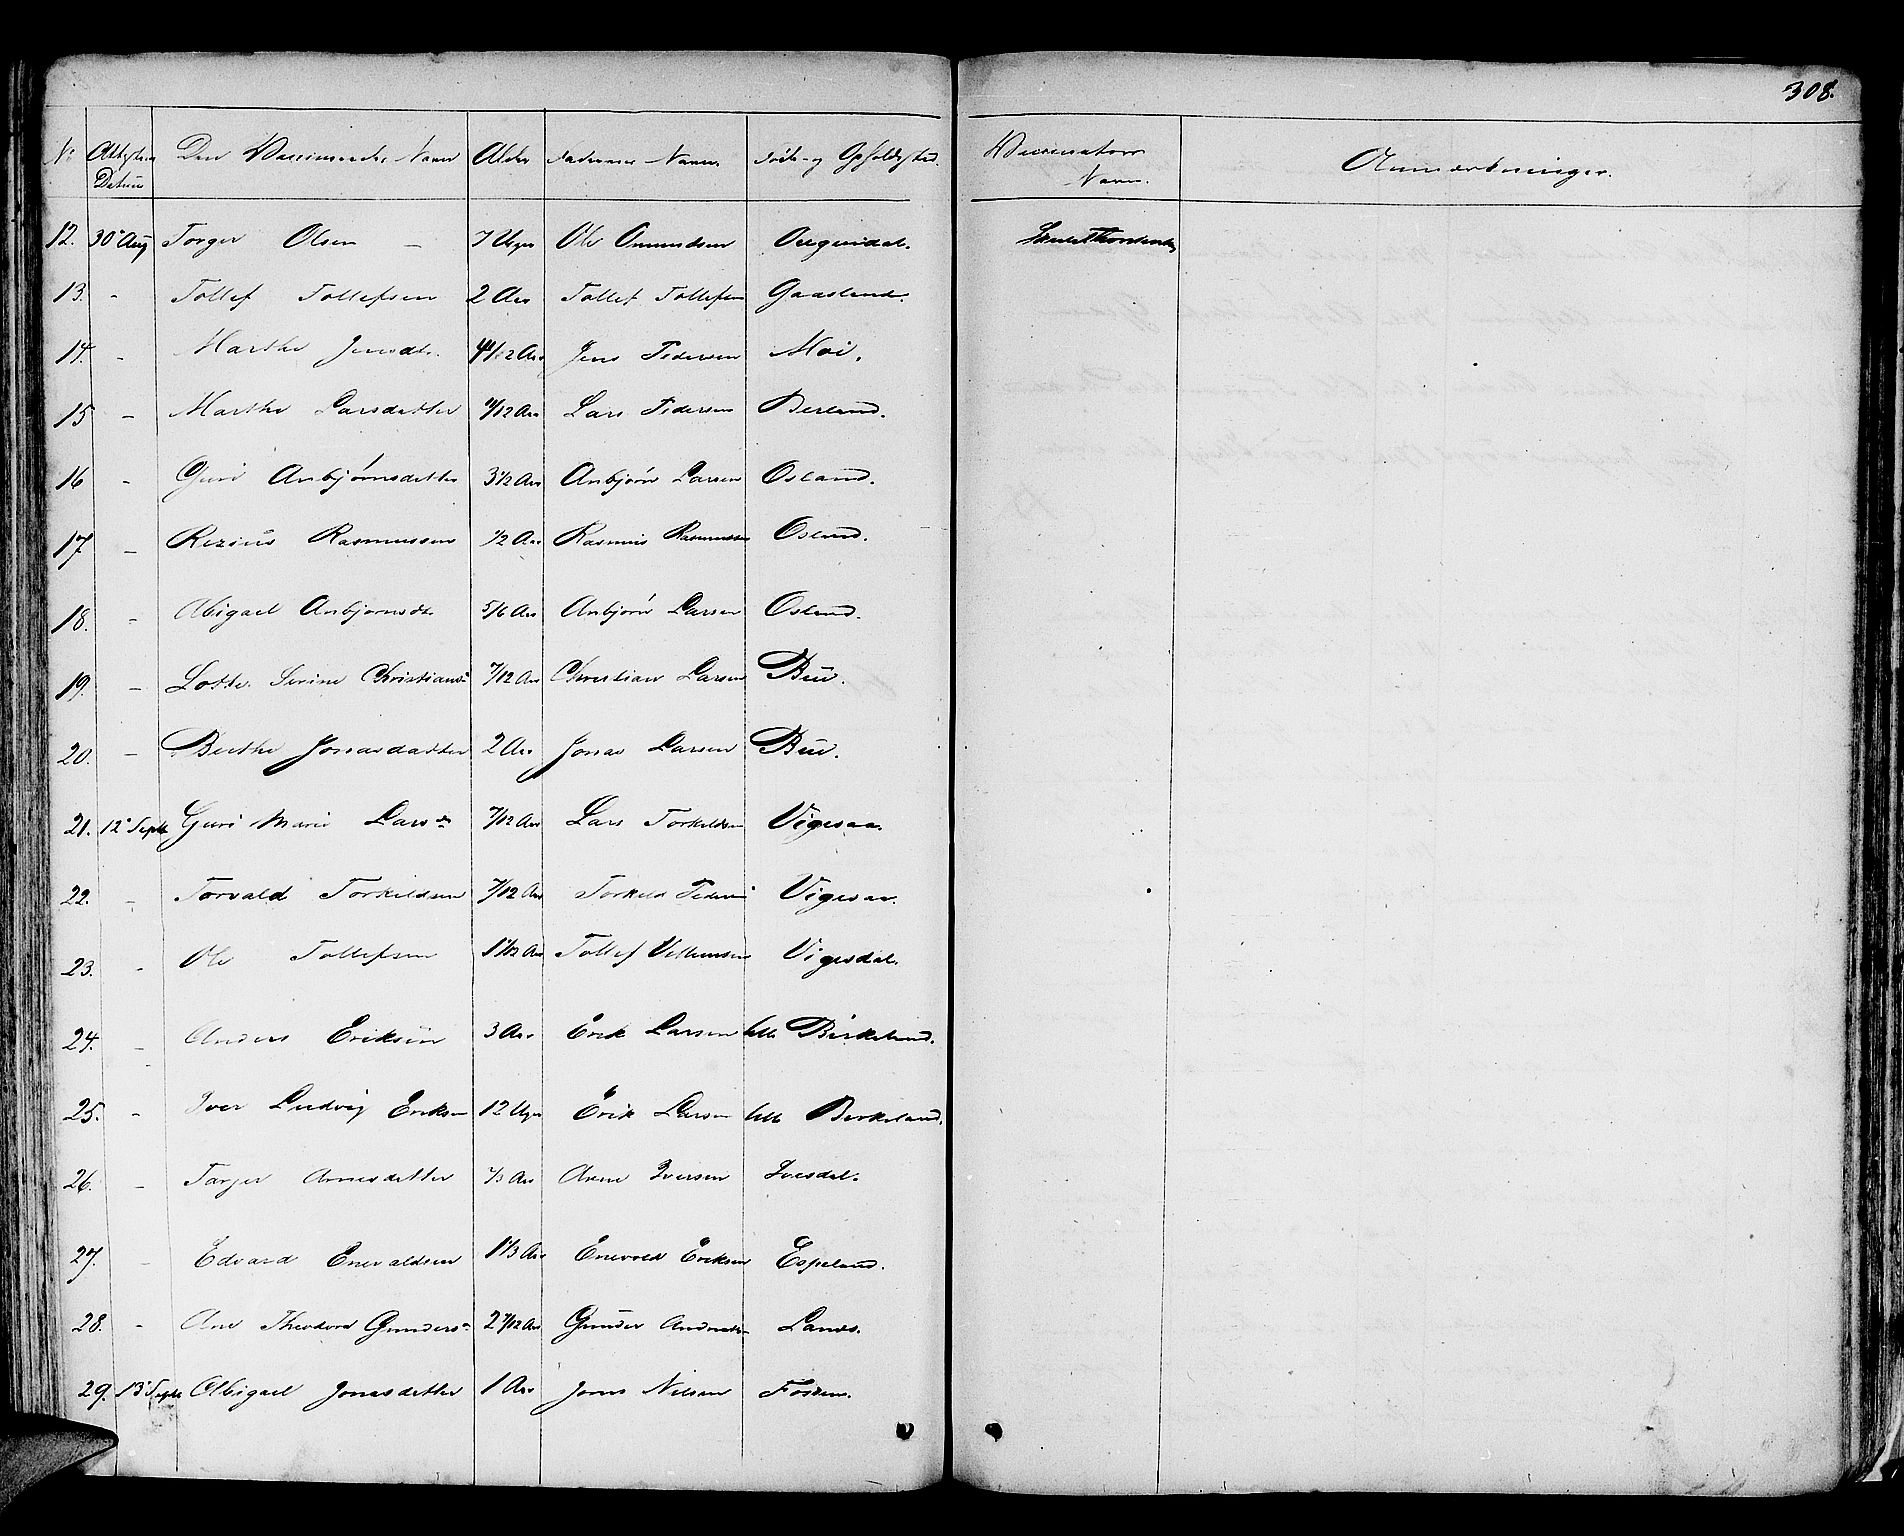 308.
No Attestens Datum Den Vaccinerede Navn Alder Faderens Navn Føde- og Opholdssted. Vaccinators Navn. Anmærkninger.
12. 30 Aug Torger Olsen 7 Uger Ole Omundsen
13. - Tollef Tollefsen 2 Aar Tollef Tollefsen Gaasland.
14. - Marthe Jensdtr. Aar Jens Pedersen Moi.
15 - Marthe Larsdatter 11/12 Aar Lars Pedersen Berland.
16 - Guri Anbjørnsdatter 3 1/2 Aar Anbjørn Larsen Osland.
17. - Rasmussen 1/2 Aar Rasmus Rasmussen Osland.
18. - Abigael Anbjørnsdtr 5/6 Aar Anbjørn Larsen Osland.
19. - Lotte Serine Christiansd 7/12 Aar Christian Larsen Bue.
20. - Berthe Jonasdatter 2 Aar Jonas Larsen Bue.
21. 12 Septb Guri Marie Larsdr 7/12 Aar Lars Torkildsen Vigesaa.
22. - Torvald Torkildsen 7/12 Aar Torkild Pedersen Vigesaa.
23. - Ole Tollefsen Aar Tollef Villumsen Vigesdal.
24. - Anders Eriksen 3 Aar Erik Larsen lille Birkeland.
25. - Iver Ludvig Eriksen 12 Uger Erik Larsen lille Birkeland.
26. - Arnesdatter Aar Arne Iversen Ivesdal.
27. - Edvard Enevaldsen 1 1/3 Aar Enevold Eriksen Espeland.
28. - Ane Theodora Gundersd 2 7/12 Aar Gunder Lands.
29. 13 Septb Abigael Jonasdatter 1 Aar Jonas Nilsen Fossen.